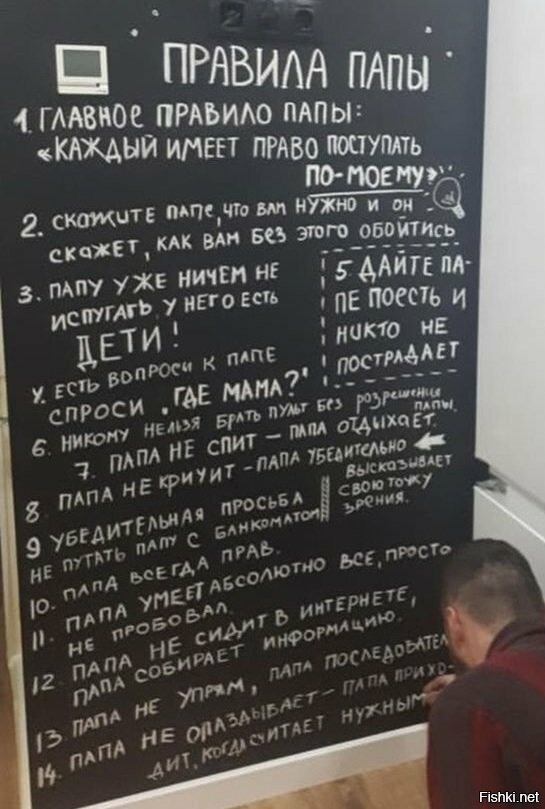 ПРАВИЛА ПАПЫ
1. ГЛАВНОЕ ПРАВИЛО ПАПЫ:
«КАЖДЫЙ ИМЕЕТ ПРАВО ПОСТУПАТЬ
ПО-МОЕМУ»
2. СКАЖИТЕ ПАПЕ, ЧТО ВАМ НУЖНО И ОН
СКАЖЕТ, КАК ВАМ БЕЗ ЭТОГО ОБОЙТИСЬ
3. ПАПУ УЖЕ НИЧЕМ НЕ
ИСПУГАТЬ У НЕГО ЕСТЬ
ДЕТИ!
5 ДАЙТЕ ПА-
ПЕ ПОЕСТЬ И
НИКТО НЕ
ПОСТРАДАЕТ
4. ЕСТЬ ВОПРОСЫ К ПАПЕ
СПРОСИ "ГДЕ МАМА?"
6. НИКОМУ НЕЛЬЗЯ БРАТЬ ПУЛЬТ БЕЗ РАЗРЕШЕНИЯ
ПАПЫ.
7. ПАПА НЕ СПИТ – ПАПА ОТДЫХАЕТ.
8. ПАПА НЕ КРИЧИТ – ПАПА УБЕДИТЕЛЬНО
ВЫСКАЗЫВАЕТ
СВОЮ ТОЧКУ
ЗРЕНИЯ.
9 УБЕДИТЕЛЬНАЯ ПРОСЬБА
НЕ ПУТАТЬ ПАПУ С БАНКОМАТОМ
10. ПАПА ВСЕГДА ПРАВ.
11. ПАПА УМЕЕТ АБСОЛЮТНО ВСЕ, ПРОСТО
НЕ ПРОБОВАЛ.
12. ПАПА НЕ СИДИТ В ИНТЕРНЕТЕ,
ПАПА СОБИРАЕТ ИНФОРМАЦИЮ.
13. ПАПА НЕ УПРЯМ, ПАПА ПОСЛЕДОВАТЕЛ
14. ПАПА НЕ ОПАЗДЫВАЕТ – ПАПА ПРИХО-
ДИТ, КОГДА СЧИТАЕТ НУЖНЫМ
Fishki.net